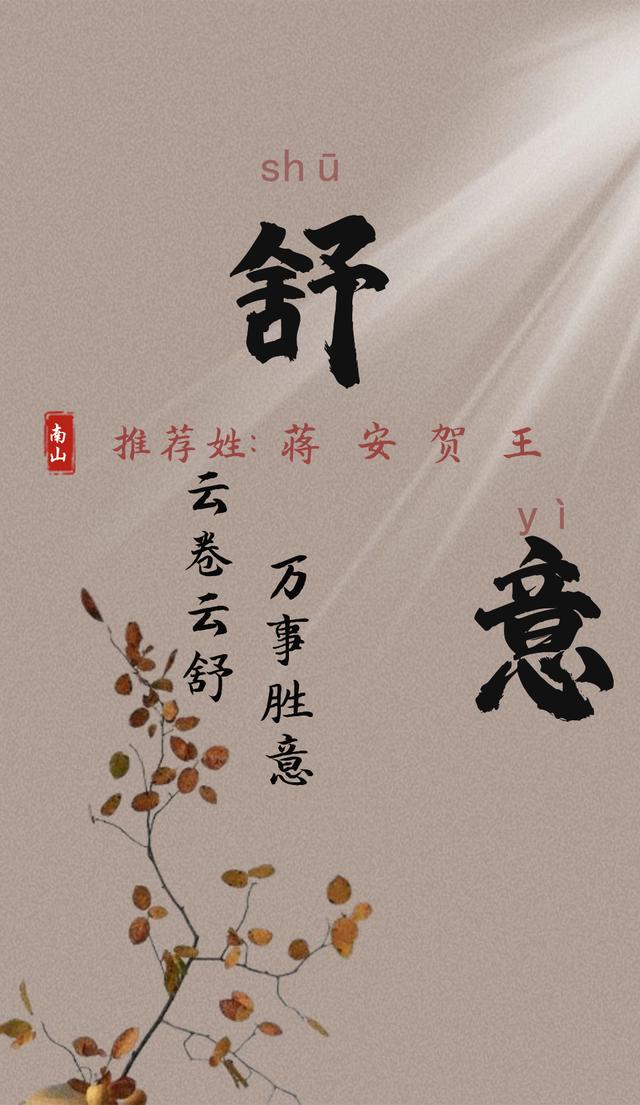 sh ū
舒
南山
推荐姓: 蒋 安 贺 王
y ì
意
云卷云舒
万事胜意